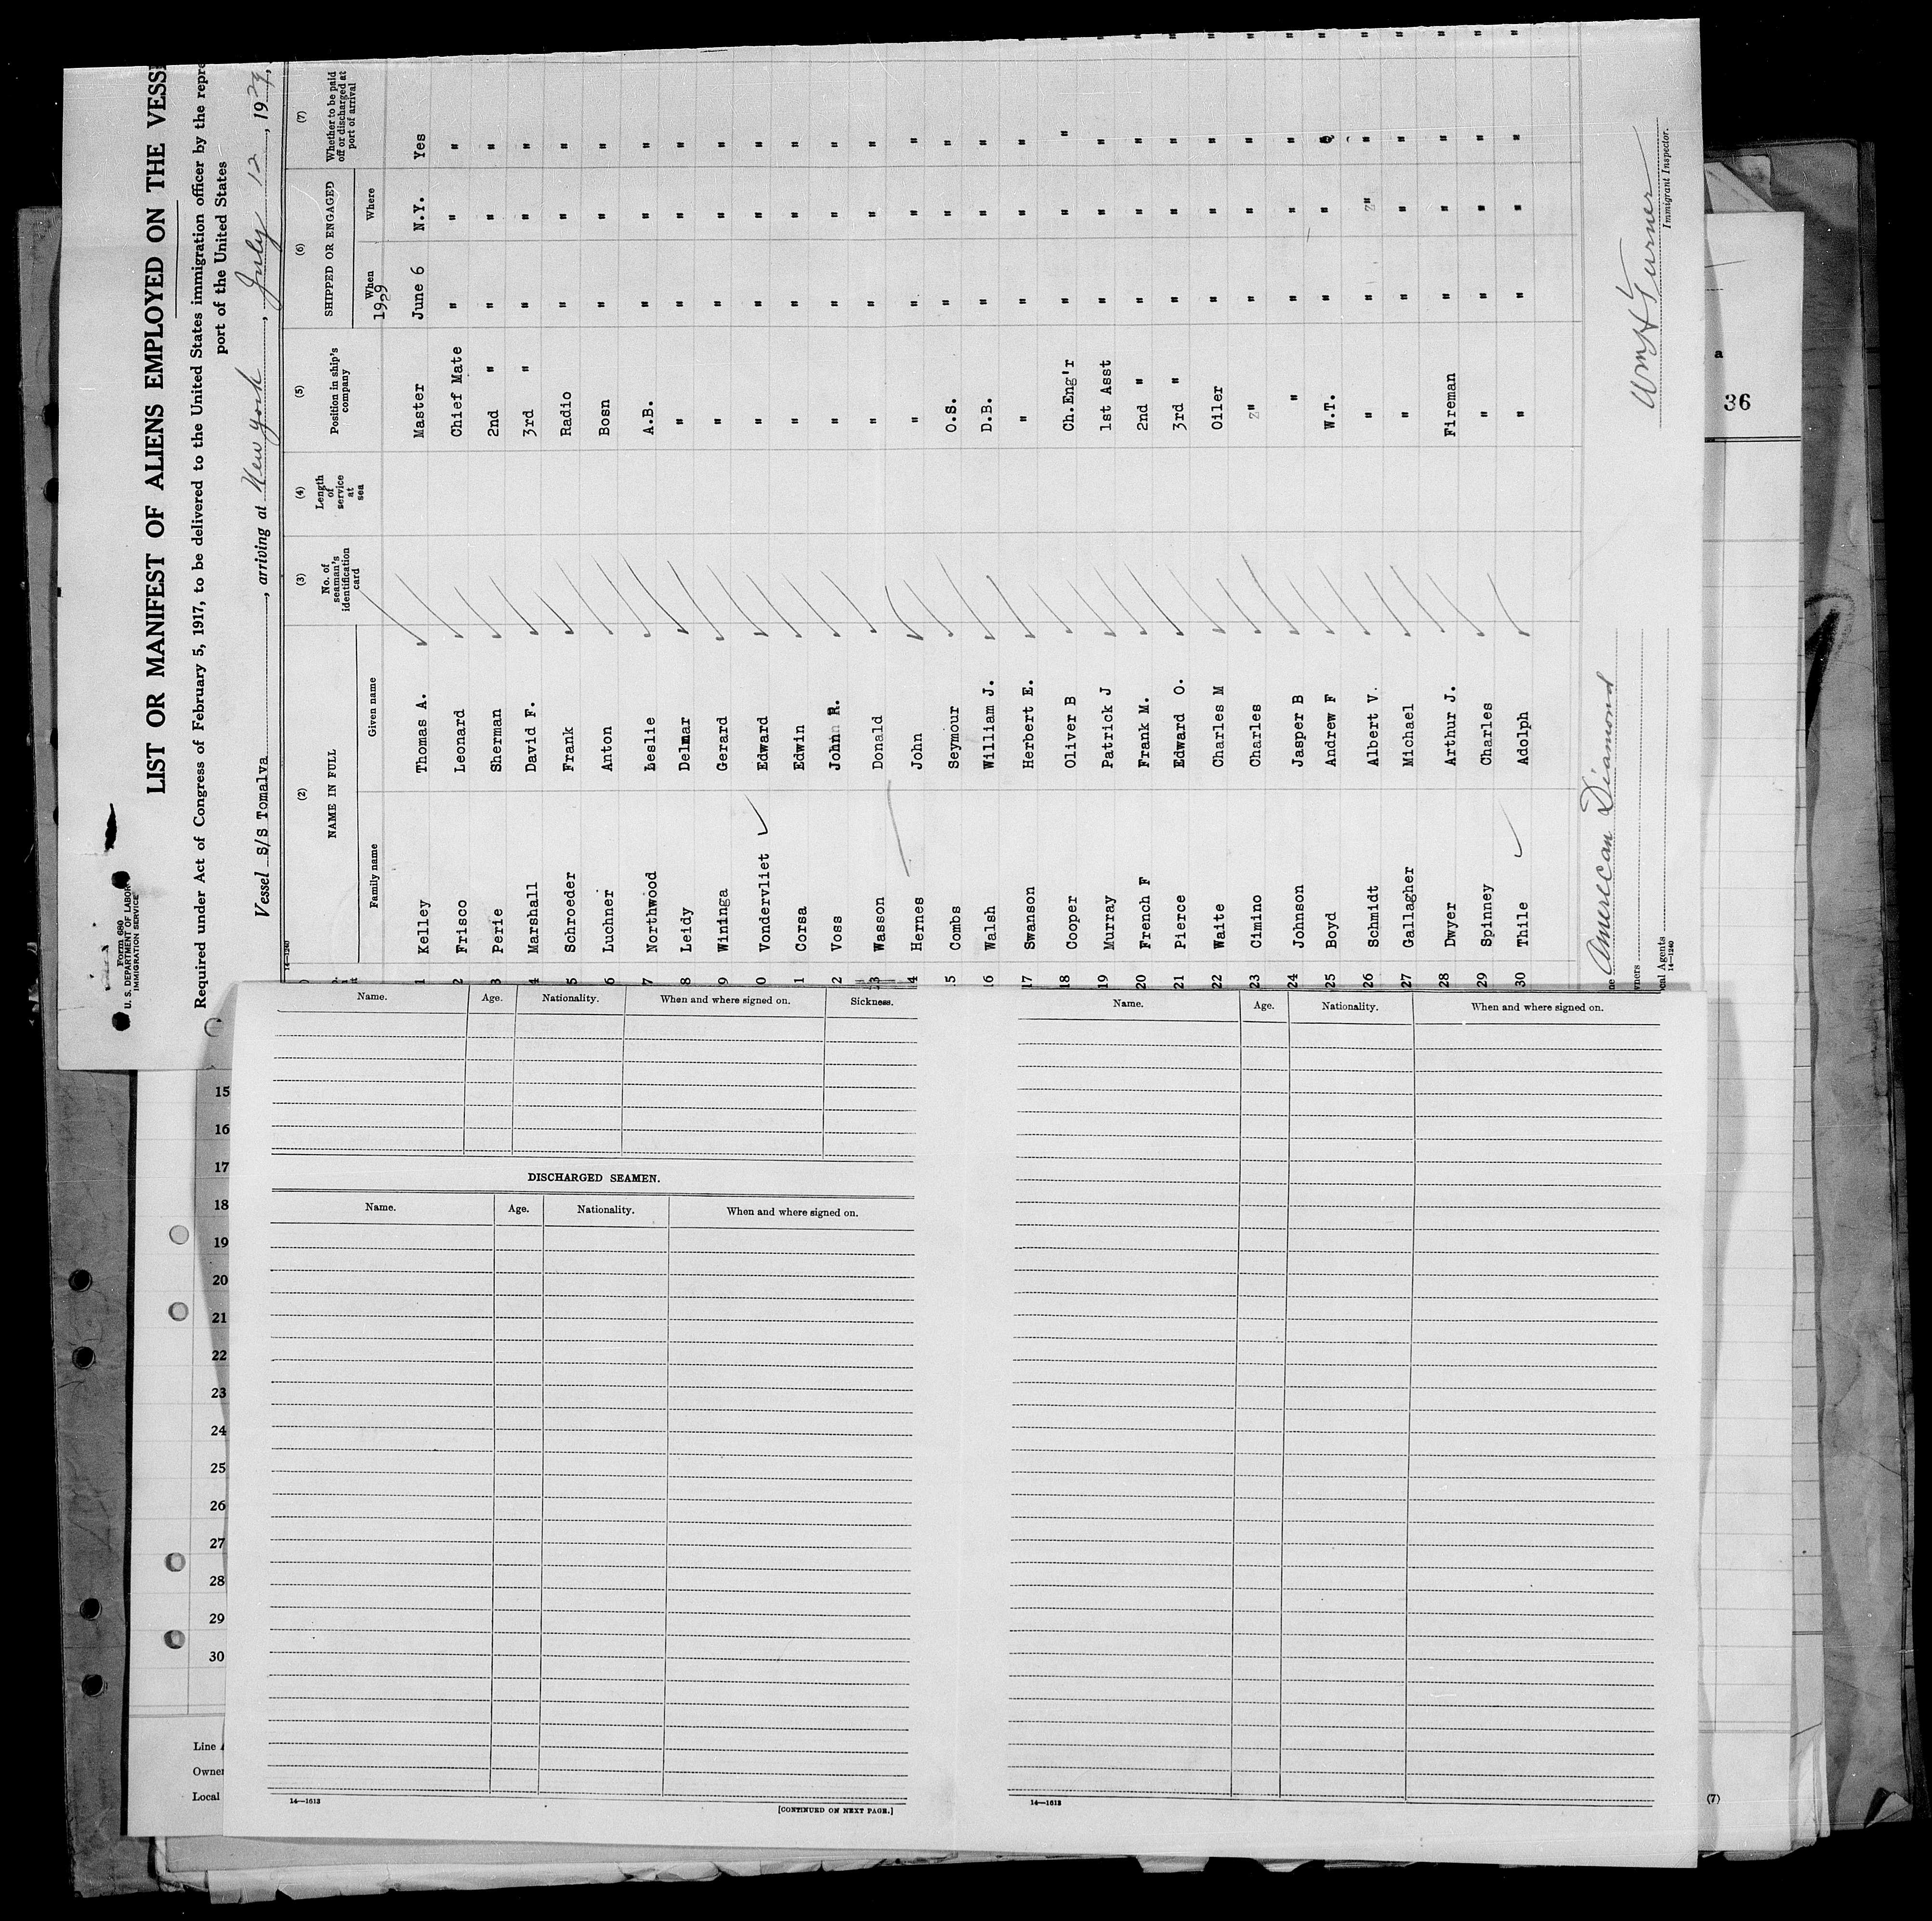 Form 680
U. S. DEPARTMENT OF LABOR
IMMIGRATION SERVICE
LIST OR MANIFEST OF ALIENS EMPLOYED ON THE VESS
Required under Act of Congress of February 5, 1917, to be delivered to the United States immigration officer by the repre
port of the United States
Vessel S/S Tomalva, arriving at New York, July 12, 1929,
14—1240
(2) (3) (4) (5) (6) (7)
NAME IN FULL No. of seaman's identification card Length of service at sea Position in ship's company SHIPPED OR ENGAGED Whether to be paid off or discharged at port of arrival
Family name Given name When Where
1929
1 Kelley Thomas A. Master June 6 N.Y. Yes
2 Frisco Leonard Chief Mate " " "
3 Perie Sherman 2nd " " " "
4 Marshall David F. 3rd " " " "
5 Schroeder Frank Radio " " "
6 Luchner Anton Bosn " " "
7 Northwood Leslie A.B. " " "
8 Leidy Delmar " " " "
9 Wininga Gerard " " " "
0 Vondervliet Edward " " " "
1 Corsa Edwin " " " "
2 Voss John R. " " " "
13 Wasson Donald " " " "
4 Hernes John " " " "
5 Combs Seymour O.S. " " "
16 Walsh William J. D.B. " " "
17 Swanson Herbert E. " " " "
18 Cooper Oliver B Ch.Eng'r " " "
19 Murray Patrick J 1st Asst " " "
20 French F Frank M. 2nd " " " "
21 Pierce Edward O. 3rd " " " "
22 Waite Charles M Oiler " " "
23 Cimino Charles " " " "
24 Johnson Jasper B " " " "
25 Boyd Andrew F W.T. " " "
26 Schmidt Albert V. " " " "
27 Gallagher Michael " " " "
28 Dwyer Arthur J. Fireman " " "
29 Spinney Charles " " " "
30 Thile Adolph " " " "
ne American Diamond
wners
cal Agents
14—1240
Wm H Turner
Immigrant Inspector.
a
36
Name. Age. Nationality. When and where signed on. Sickness.
DISCHARGED SEAMEN.
Name. Age. Nationality. When and where signed on.
14—1613
[CONTINUED ON NEXT PAGE.]
Name. Age. Nationality. When and where signed on.
14—1613
15
16
17
18
19
20
21
22
23
24
25
26
27
28
29
30
Line
Owner
Local
(7)